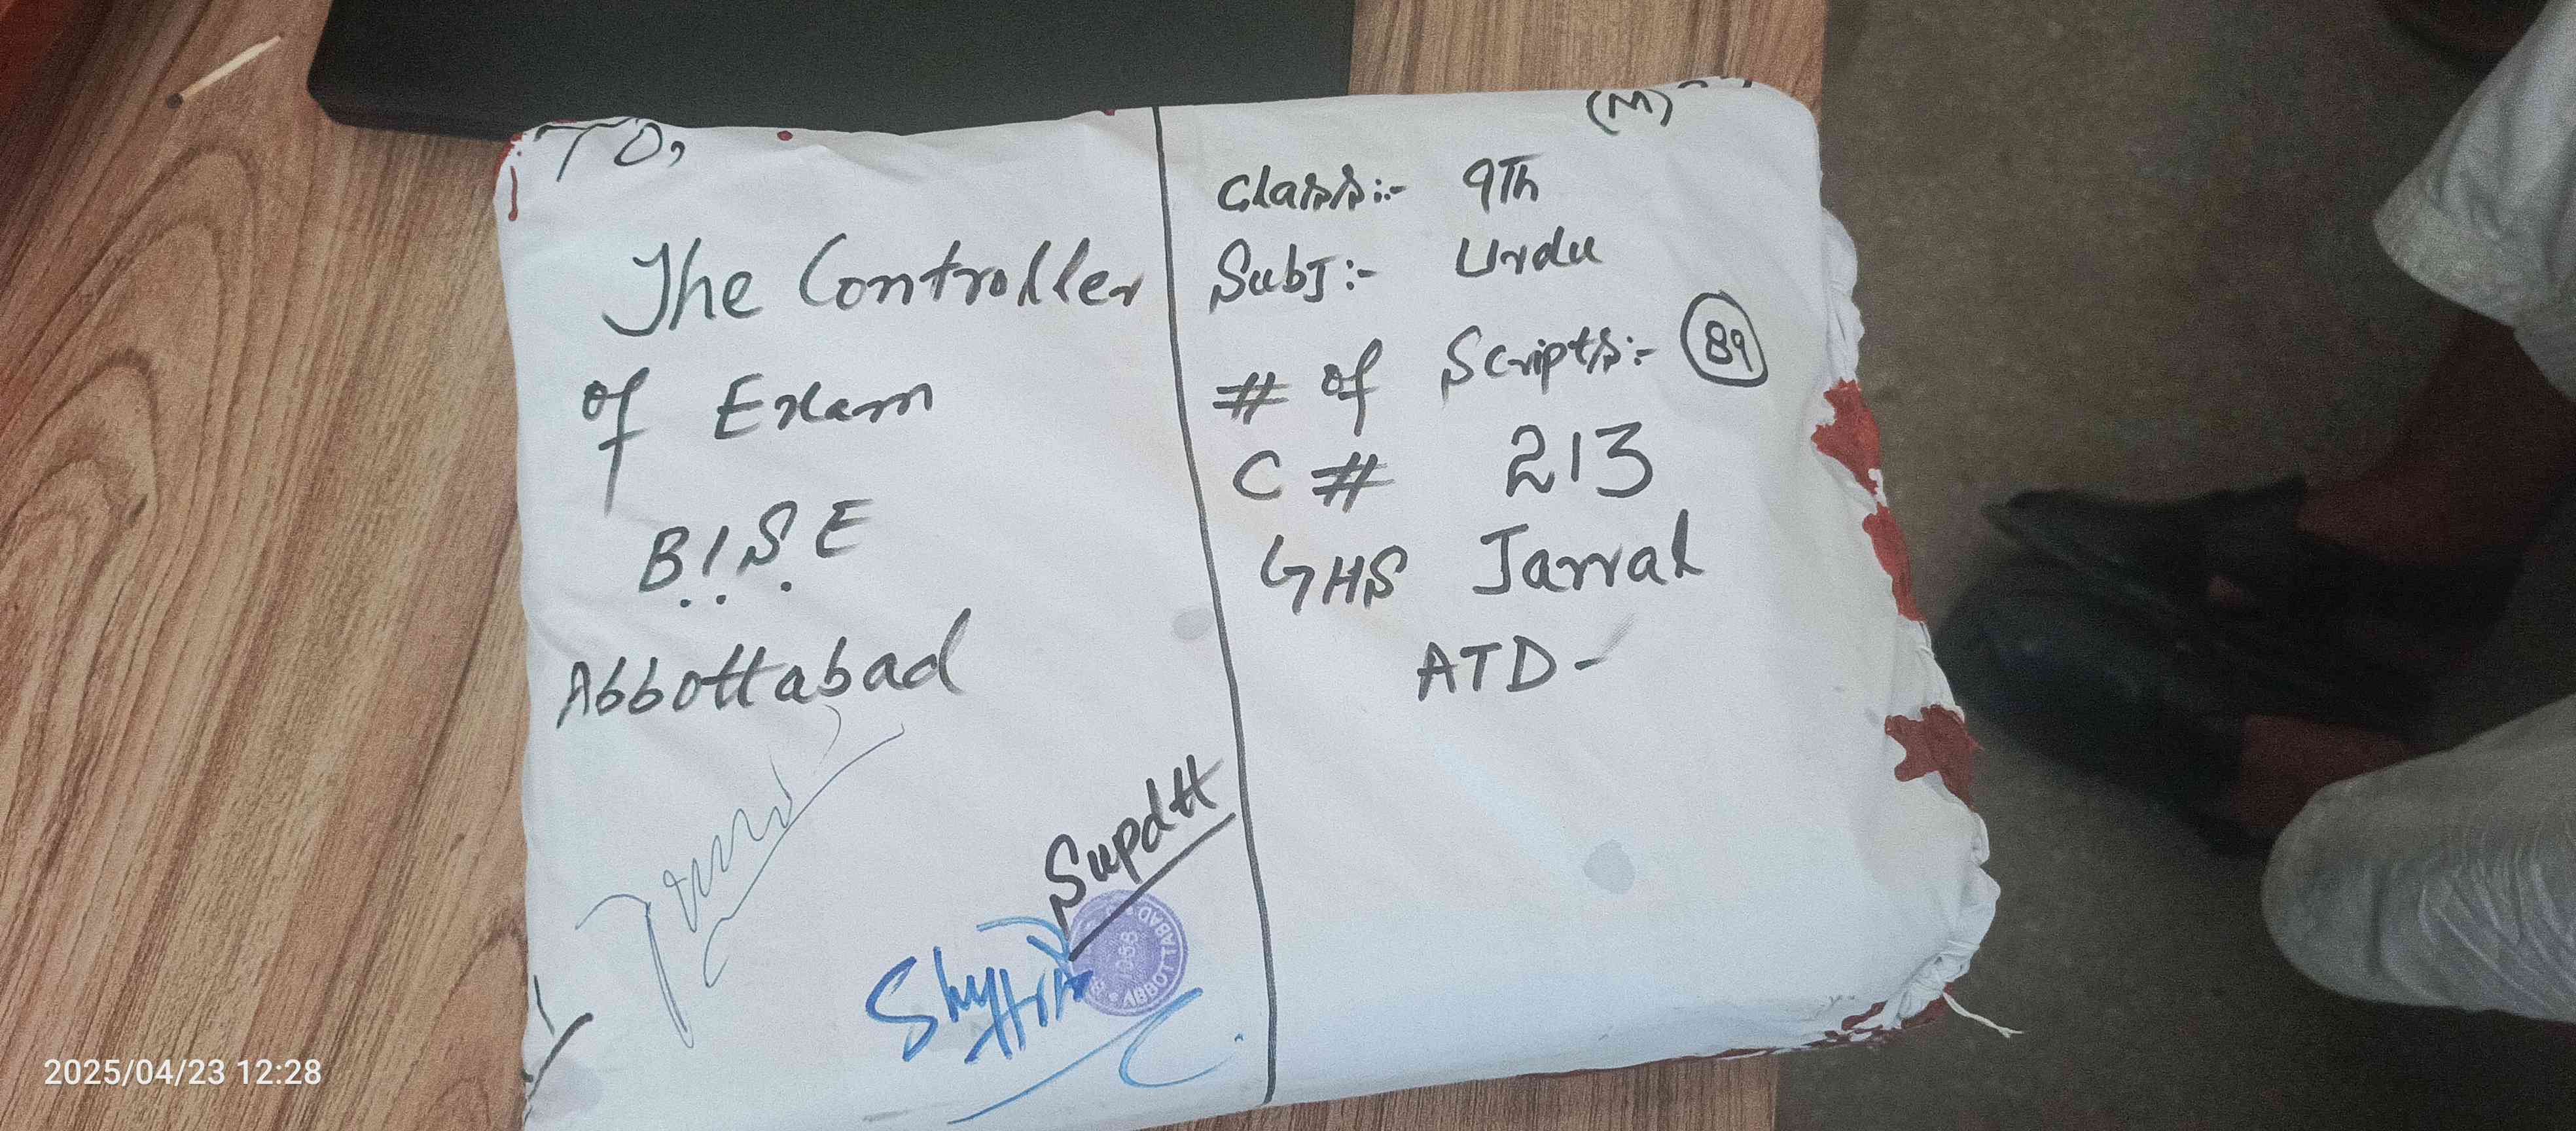 To,
The Controller
of Exam
B.I.S.E
Abbottabad
Supdtt
ABBOTTABAD
(M)
Class:- 9Th
Subj:- Urdu
# of Scripts:- 89
C # 213
GHS Jarral
ATD-
2025/04/23 12:28